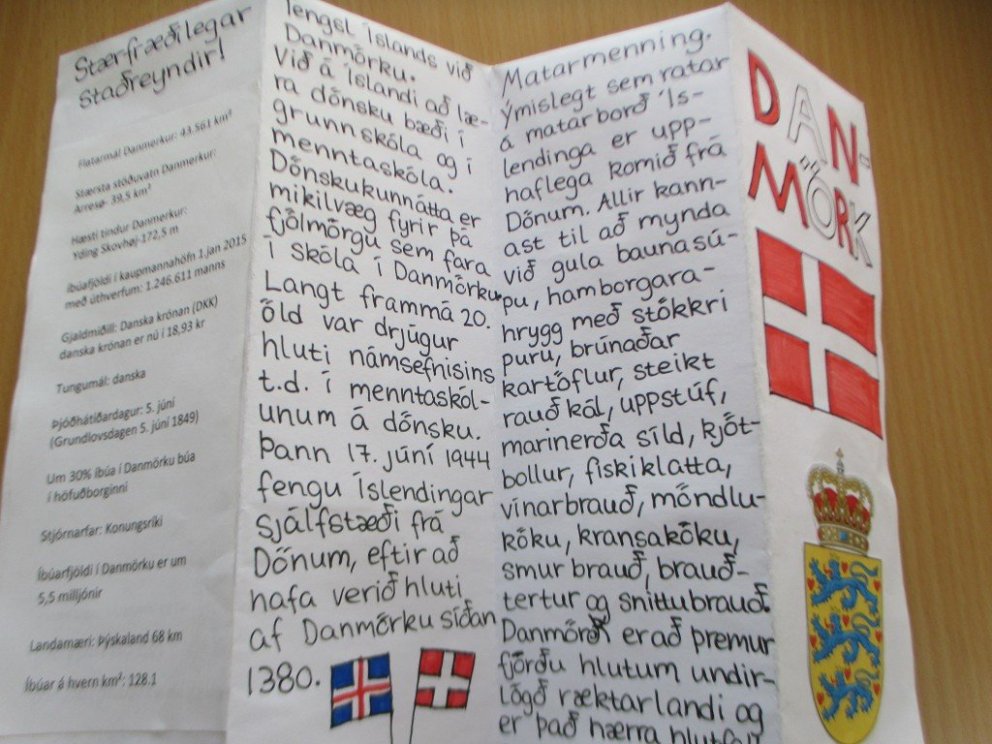 Stærfræðilegar
staðreyndir!
Flatarmál Danmerkur: 43.561 km²
Stærsta stöðuvatn Danmerkur:
Arresø- 39,5 km²
Hæsti tindur Danmerkur:
Yding Skovhøj-172,5 m
Íbúafjöldi í kaupmannahöfn 1.jan 2015
með úthverfum: 1.246.611 manns
Gjaldmiðill: Danska krónan (DKK)
danska krónan er nú í 18,93 kr
Tungumál: danska
Þjóðhátíðardagur: 5. júní
(Grundlovsdagen 5. júní 1849)
Um 30% íbúa í Danmörku búa
í höfuðborginni
Stjórnarfar: Konungsríki
Íbúarfjöldi í Danmörku er um
5,5 milljónir
Landamæri: Þýskaland 68 km
Íbúar á hvern km²: 128.1
Tengsl Íslands við
Danmörku.
Við á Íslandi að læ-
ra dönsku bæði í
grunnskóla og í
menntaskóla.
Dönskukunnátta er
mikilvæg fyrir þá
fjölmörgu sem fara
í skóla í Danmörku.
Langt frammá 20.
öld var drjúgur
hluti námsefnisins
t.d. í menntaskól-
unum á dönsku.
Þann 17. júní 1944
fengu íslendingar
sjálfstæði frá
Dönum, eftir að
hafa verið hluti
af Danmörku síðan
1380.
Matarmenning.
Ýmislegt sem ratar
á matarborð Ís-
lendinga er upp-
haflega komið frá
Dönum. Allir kann-
ast til að mynda
við gula baunasú-
pu, hamborgara-
hrygg með stökkri
puru, brúnaðar
kartöflur, steikt
rauðkál, uppstúf,
marinerða síld, kjöt-
bollur, fiskiklatta,
vínarbrauð, möndlu-
köku, kransaköku,
smurbrauð, brauð-
tertur og snittubrauð.
Danmörk er að þremur
fjórðu hlutum undir-
lögð ræktarlandi og
er það hærra hlutfall
DAN-
MÖRK